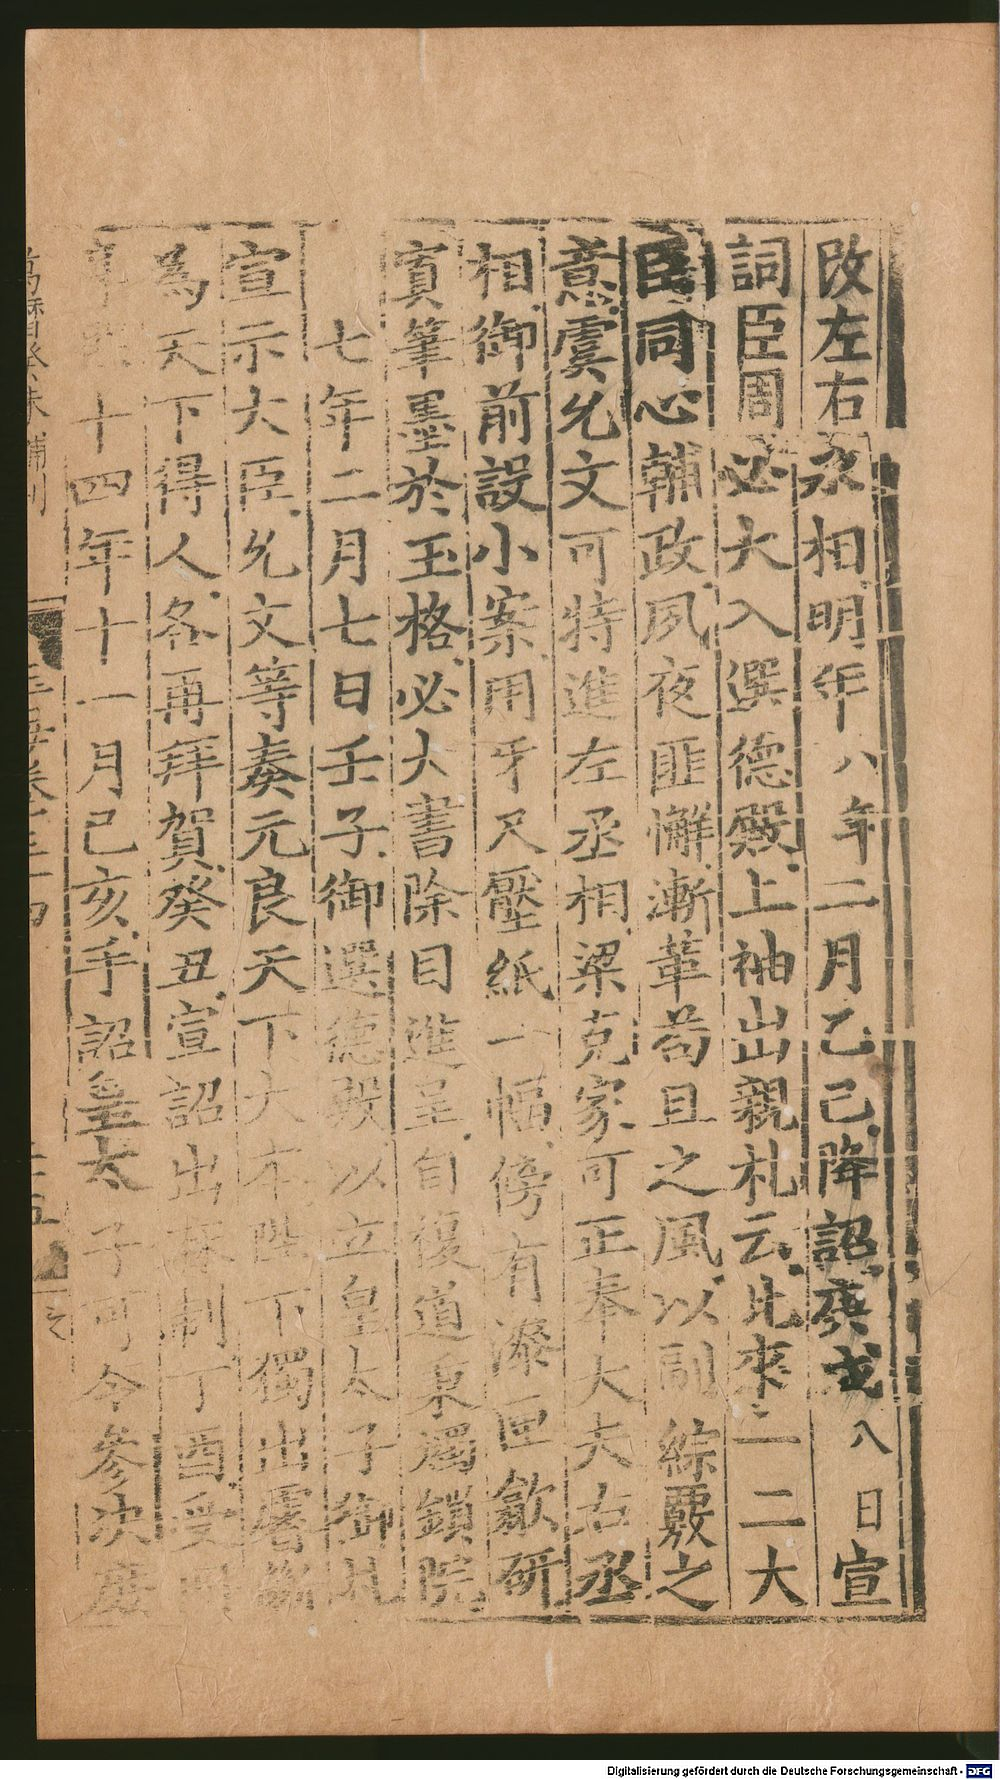 改左右丞相明年八年二月乙巳降詔庚戌八日宣
詞臣周必大入選德殿上袖出親札云比來一二大
臣同心輔政夙夜匪懈漸革苟且之風以副綜覈之
意虞允文可特進左丞相梁克家可正奉大夫右丞
相御前設小案用牙尺壓紙一幅傍有漆匣歙硏
寘筆墨於玉格必大書除目進呈自復道秉燭鎖院
七年二月七日壬子御選德殿以立皇太子御札
宣示大臣允文等奏元良天下大本陛下獨出睿斷
為天下得人各再拜賀癸丑宣詔出麻制丁酉受冊
十四年十一月己亥手詔皇太子可令參決庶
萬曆癸未補刊
玉海卷
Digitalisierung gefördert durch die Deutsche Forschungsgemeinschaft - DFG